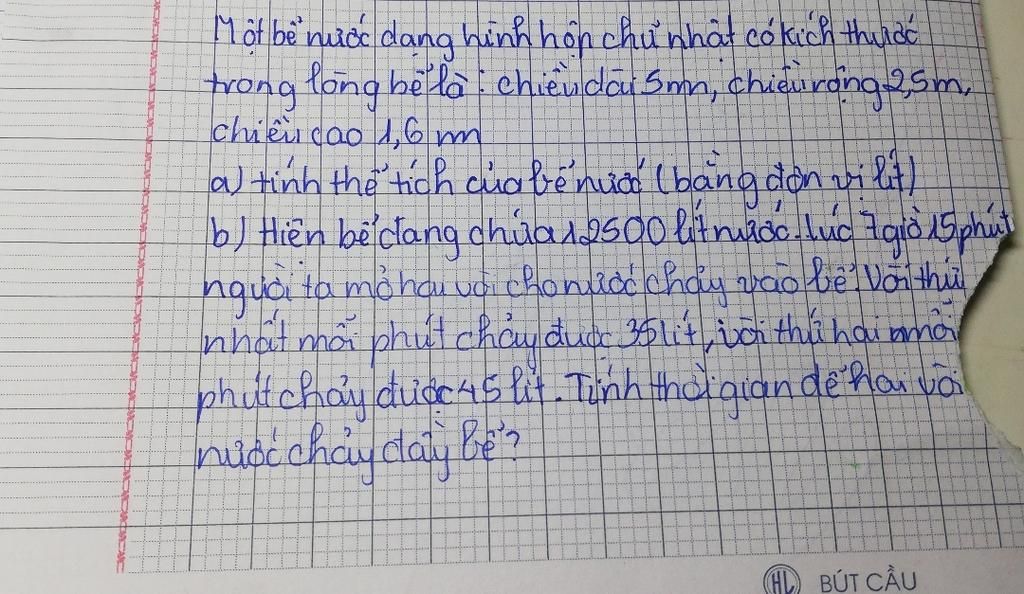 Một bể nước dạng hình hộp chữ nhật có kích thước
trong lòng bể là : chiều dài 5m, chiều rộng 2,5m,
chiều cao 1,6 m
a) tính thể tích của bể nước (bằng đơn vị lít)
b) Hiện bể đang chứa 12500 lít nước. Lúc 7 giờ 15 phút
người ta mở hai vòi cho nước chảy vào bể. Vòi thứ
nhất mỗi phút chảy được 35 lít, vòi thứ hai mỗi
phút chảy được 45 lít. Tính thời gian để hai vòi
nước chảy đầy bể?
HL BÚT CẦU